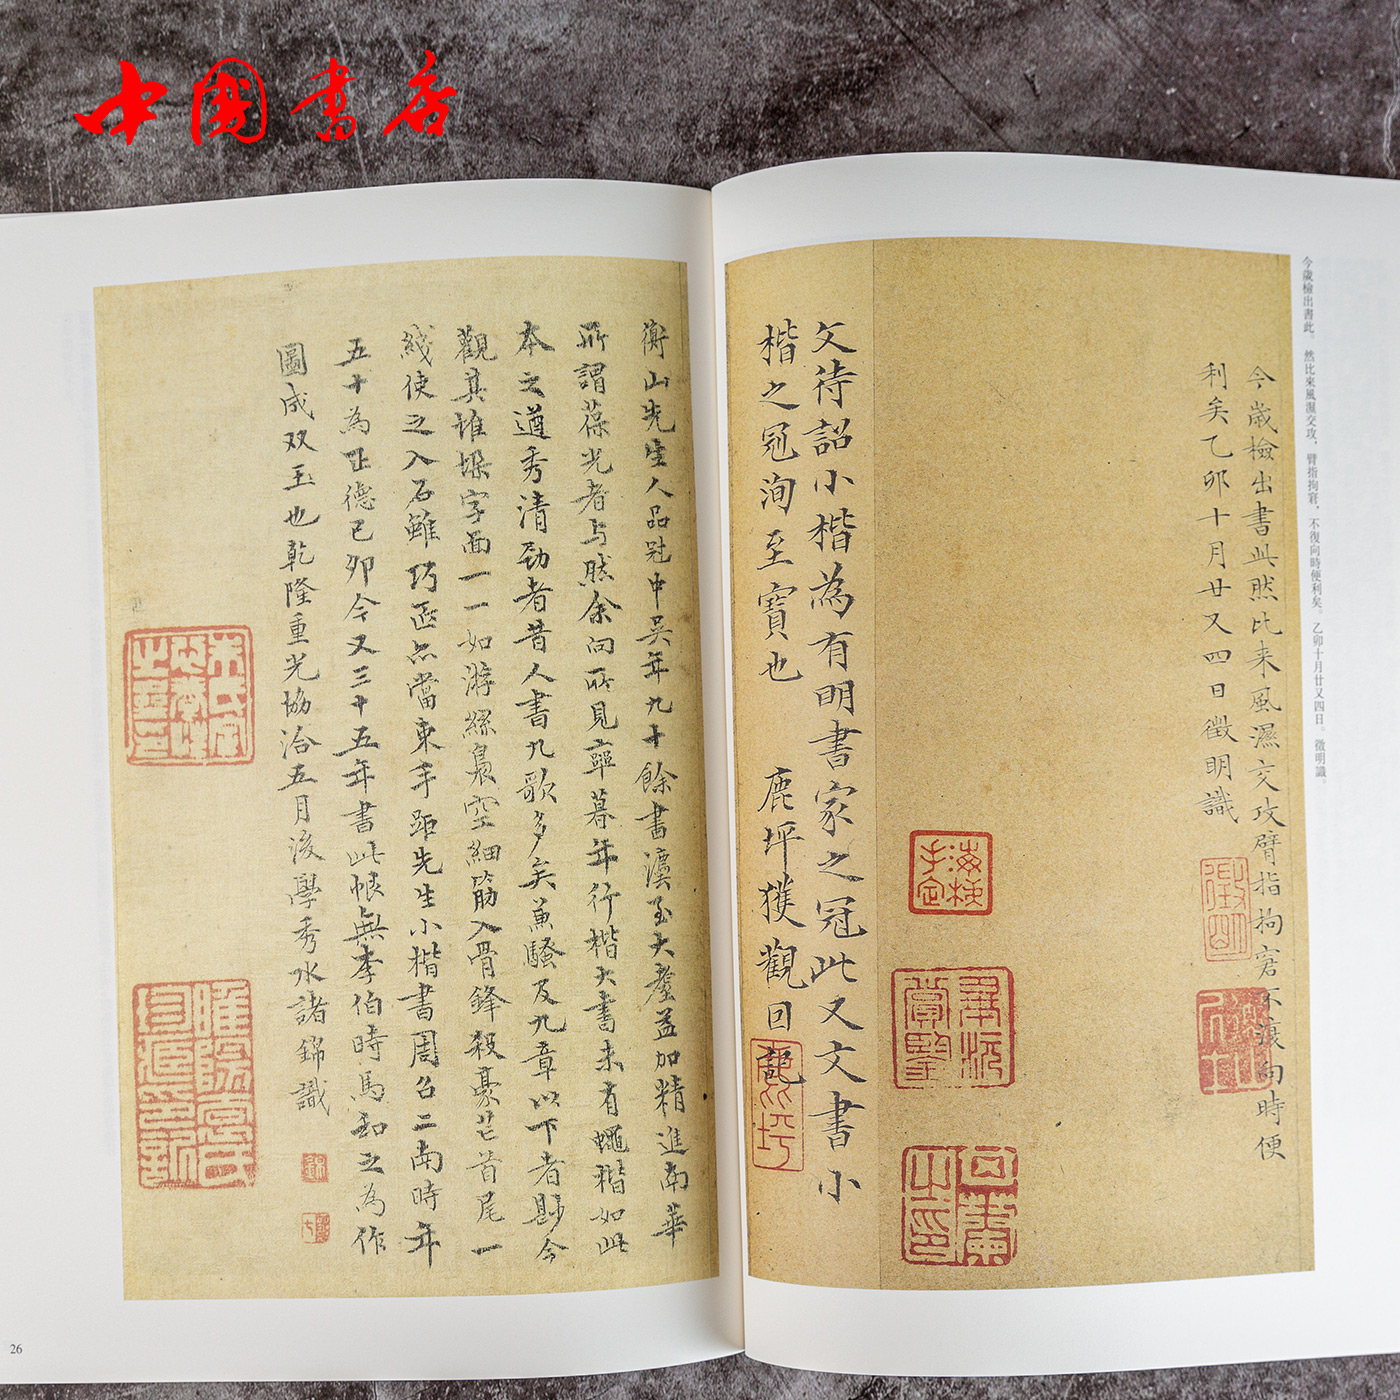 中國書店
今歲檢出書此。然比來風濕交攻，臂指拘窘，不復向時便利矣。乙卯十月廿又四日。徵明識。
今歲檢出書此然比来風濕交攻臂指拘窘不復向時便
利矣乙卯十月廿又四日徵明識
文待詔小楷為有明書家之冠此又文書小
楷之冠洵至寶也 鹿坪獲觀回記
衡山先生人品冠中吴年九十餘書漢至大耋益加精進南華
所謂葆光者与然余向所見率暮年行楷大書未有蠅楷如此
本之遒秀清勁者昔人書九歌多矣兼騷及九章以下者尠今
觀其堆垛字面一一如游絲裊空細筋入骨鋒殺豪芒首尾一
綫使之入石雖巧匠亦當束手距先生小楷書周召二南時年
五十為正德己卯今又三十五年書此帙無李伯時馬和之為作
圖成双玉也乾隆重光協洽五月後學秀水諸錦識
徵明
鹿坪
26